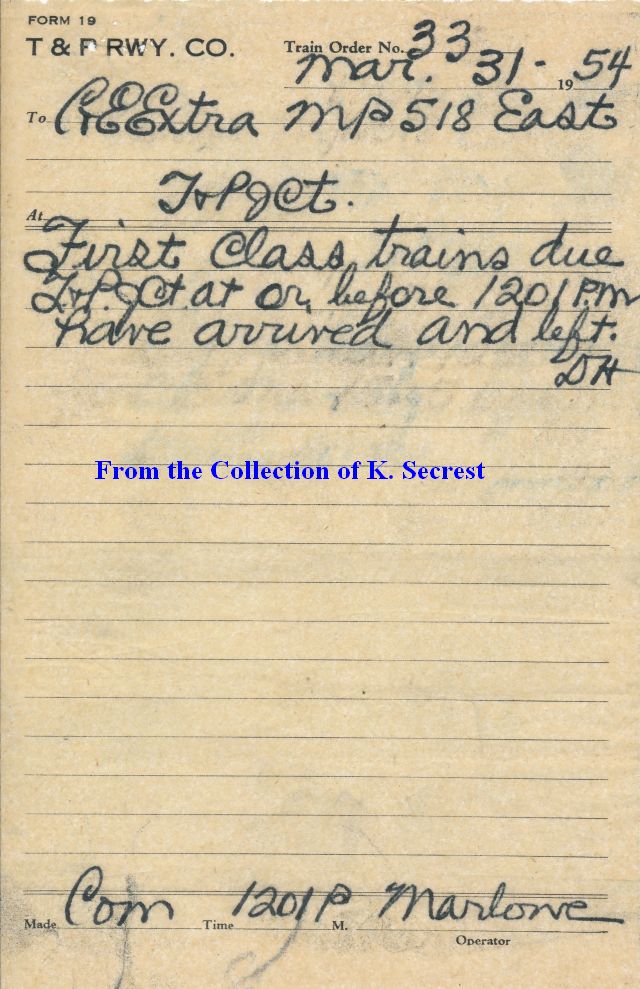 FORM 19
T & P RWY. CO.
Train Order No. 33
Mar. 31 - 1954
To C&E Extra MP 518 East
At T&P Jct.
First Class trains due
T&P. Jct. at or before 1201 P.M
have arrived and left.
DH
From the Collection of K. Secrest
Made Com Time 1201 P M. Marlowe
Operator